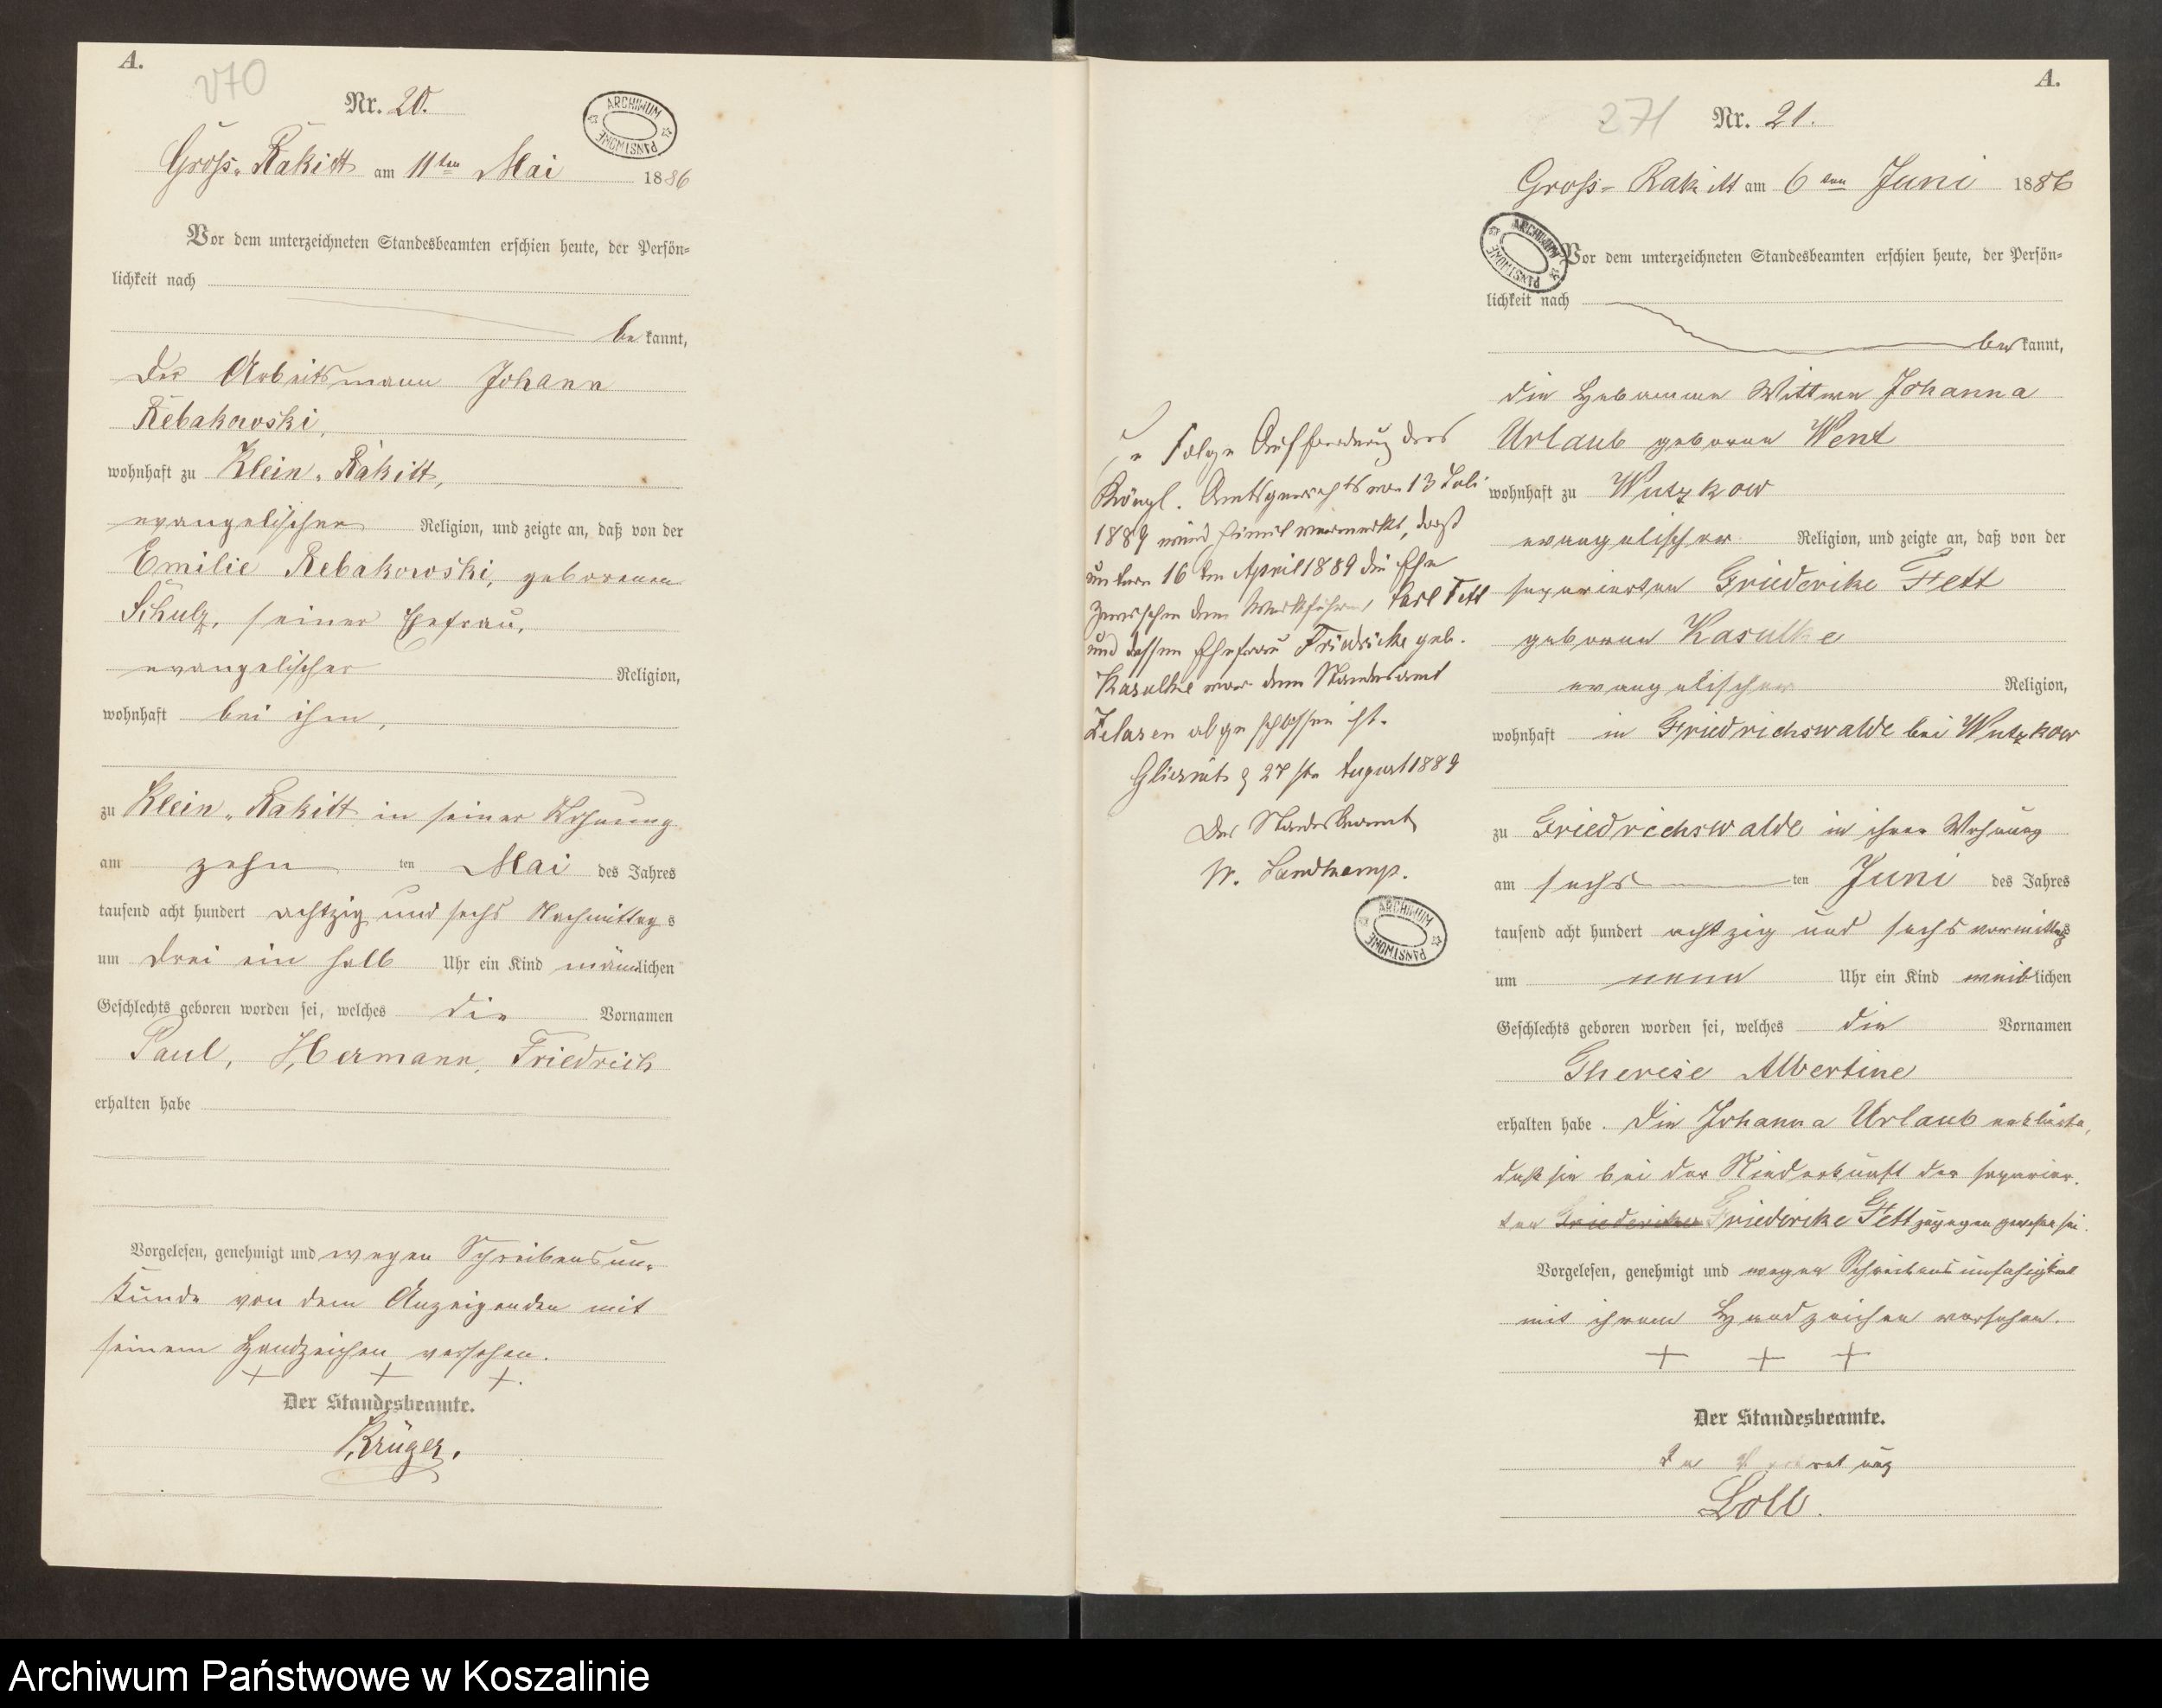 A.
270
Nr. 20.
ARCHIWUM PAŃSTWOWE
Gross-Rakitt am 11ten Mai 1886
Vor dem unterzeichneten Standesbeamten erschien heute, der Persön-
lichkeit nach
be kannt,
der Arbeitsmann Johann
Rebakowski,
wohnhaft zu Klein-Rakitt,
evangelischer Religion, und zeigte an, daß von der
Emilie Rebakowski, geborenen
Schulz, seiner Ehefrau,
evangelischer Religion,
wohnhaft bei ihm,
zu Klein-Rakitt in seiner Wohnung
am zehn ten Mai des Jahres
tausend acht hundert achtzig und sechs Nachmittags
um drei ein halb Uhr ein Kind männlichen
Geschlechts geboren worden sei, welches die Vornamen
Paul, Hermann, Friedrich
erhalten habe
Vorgelesen, genehmigt und wegen Schreibensun-
kunde von dem Anzeigenden mit
seinem Handzeichen versehen.
+ + +.
Der Standesbeamte.
Krüger.
A.
271
Nr. 21.
Gross-Rakitt am 6ten Juni 1886
ARCHIWUM PAŃSTWOWE
Vor dem unterzeichneten Standesbeamten erschien heute, der Persön-
lichkeit nach
be kannt,
die Hebamme Wittwe Johanna
Urlaub geborene Went
wohnhaft zu Wutzkow
evangelischer Religion, und zeigte an, daß von der
separierten Friederike Fett
geborene Kasulke
evangelischer Religion,
wohnhaft in Friedrichswalde bei Wutzkow
zu Friedrichswalde in ihrer Wohnung
am sechs ten Juni des Jahres
tausend acht hundert achtzig und sechs vormittags
um neun Uhr ein Kind weiblichen
Geschlechts geboren worden sei, welches die Vornamen
Therese Albertine
erhalten habe. Die Johanna Urlaub erklärte,
daß sie bei der Niederkunft der separier-
ten Friederike Friederike Fett zugegen gewesen sei.
Vorgelesen, genehmigt und wegen Schreibensunfähigkeit
mit ihrem Handzeichen versehen.
+ + +
Der Standesbeamte.
In Vertretung
Loll.
In Folge Aufforderung des
Königl. Amtsgerichts vom 13 Juli
1889 wird hiermit vermerkt, dass
unterm 16ten April 1889 die Ehe
zwischen dem Werkführer Carl Fett
und dessen Ehefrau Friedricke geb.
Kasulke vor dem Standesamt
Zelasen abgeschlossen ist.
27ste August 1889
Der Standesbeamte
W. Landkamp.
ARCHIWUM PAŃSTWOWE
Archiwum Państwowe w Koszalinie